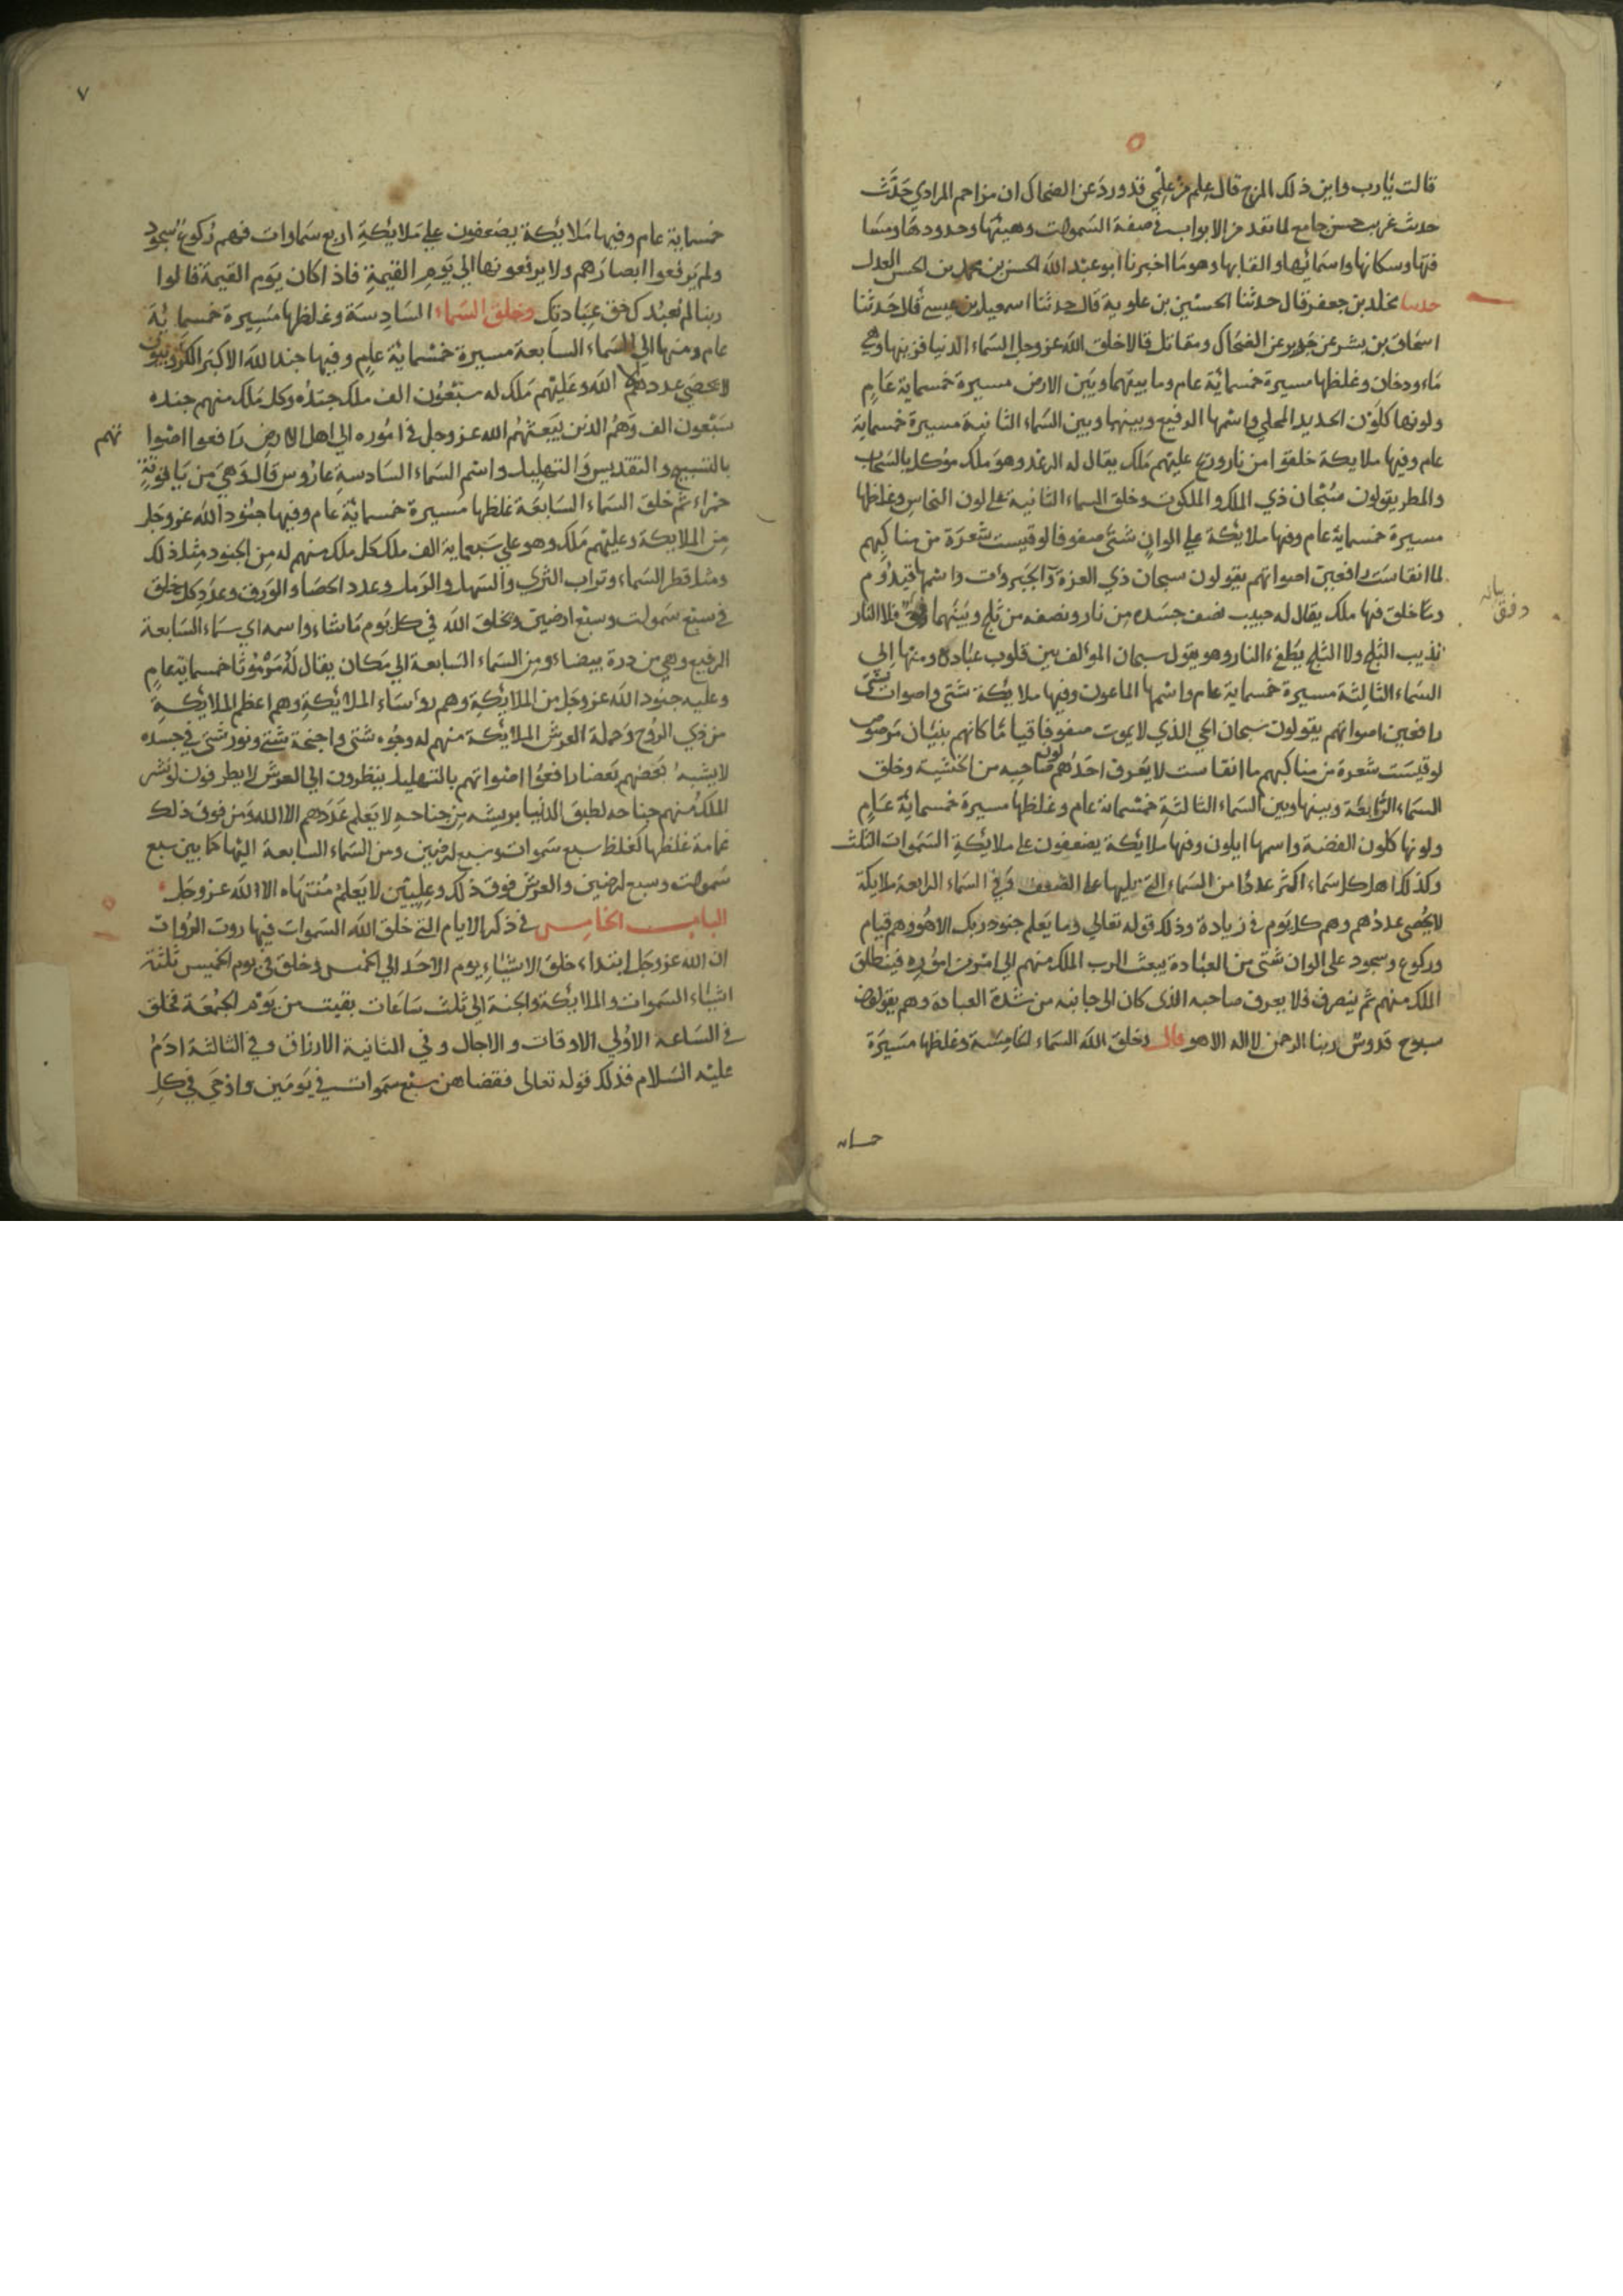 قالت يارب واين ذلك المرج قال علم من علمي قد ورد عن الضحاك ان مزاحم المرادي حدث
حديث غريب حسن جامع لما تقدم من الابواب في صفة السموات وهيئتها وحدودها وسما
فتها وسكانها واسمائها والقابها وهو ما اخبرنا ابو عبد الله الحسن بن محمد بن الحسن العدل
حدثنا مخلد بن جعفر قال حدثنا الحسين بن علوية قال حدثنا اسمعيل بن عيسى قال حدثنا
اسحاق بن بشر عن جويبر عن الضحاك ومقاتل قالا خلق الله عز وجل السماء الدنيا فزينها وهي
ماء ودخان وغلظها مسيرة خمسمائة عام وما بينهما وبين الارض مسيرة خمسماية عام
ولونها كلون الحديد المحلي واسمها الرفيع وبينها وبين السماء الثانية مسيرة خمسماية
عام وفيها ملايكة خلقوا من نار وريح عليهم ملك يقال له الرعد وهو ملك موكل بالسحاب
والمطر يقولون سبحان ذي الملك والملكوت وخلق السماء الثانية على لون النحاس وغلظها
مسيرة خمسماية عام وفيها ملائكة على الوان شتى صفوفا لو قيست شعرة من مناكبهم
لما انقاست رافعين اصواتهم يقولون سبحان ذي العزة والجبروت واسمها قيدوم
ومما خلق فيها ملك يقال له حبيب نصف جسده من نار ونصفه من ثلج وبينهما رتق فلا النار
تذيب الثلج ولا الثلج يطفء النار وهو يقول سبحان المؤلف بين قلوب عباده ومنها الى
السماء الثالثة مسيرة خمسماية عام واسمها الماعون وفيها ملايكة شتى واصوات شتى
رافعين اصواتهم يقولون سبحان الحي الذي لا يموت صفوفا قياما كانهم بنيان مرصوص
لو قيست شعرة من مناكبهم ما انقاست لا يعرف احدهم لون صاحبه من الخشية وخلق
السماء الرابعة وبينها وبين السماء الثالثة خمسماية عام وغلظها مسيرة خمسماية عام
ولونها كلون الفضة واسمها ايلون وفيها ملايكة يضعفون على ملايكة السموات الثلث
وكذلك اهل كل سماء اكثر عددا من السماء التي يليها على الضعف وفي السماء الرابعة ملايكة
لا يحصى عددهم وهم كل يوم في زيادة وذلك قوله تعالى وما يعلم جنود ربك الا هو وهم قيام
وركوع وسجود على الوان شتى من العبادة يبعث الرب الملك منهم الى امر من اموره فينطلق
الملك منهم ثم ينصرف فلا يعرف صاحبه الذي كان الى جانبه من شدة العبادة وهم يقولون
سبوح قدوس ربنا الرحمن لا اله الا هو قال وخلق الله السماء الخامسة وغلظها مسيرة
٧
خمسماية عام وفيها ملايكة يضعفون على ملايكة اربع سماوات فهم ركوع سجود
ولم يرفعوا ابصارهم ولا يرفعونها الى يوم القيمة فاذا كان يوم القيمة قالوا
ربنا لم نعبدك حق عبادتك وخلق السماء السادسة وغلظها مسيرة خمسمائة
عام ومنها الى السماء السابعة مسيرة خمسمائة عام وفيها جند الله الاكبر الكروبيون
لا يحصي عددهم الا الله وعليهم ملك له سبعون الف ملك جنده وكل ملك منهم جنده
سبعون الف وهم الذين يبعثهم الله عز وجل في اموره الى اهل الارض رافعوا اصوا
تهم
بالتسبيح والتقديس والتهليل واسم السماء السادسة عاروس قال وهي من ياقوتة
حمراء ثم خلق السماء السابعة غلظها مسيرة خمسمائة عام وفيها جنود الله عز وجل
من الملايكة وعليهم ملك وهو على سبعماية الف ملك كل ملك منهم له من الجنود مثل ذلك
ومثل قطر السماء وتراب الثرى والسهل والرمل وعدد الحصا والورق وعدد كل خلق
في سبع سموات وسبع ارضين ويخلق الله في كل يوم ما شاء واسمه اي سماء السابعة
الرفيع وهي من درة بيضاء ومن السماء السابعة الى مكان يقال له مزموثا خمسماية عام
وعليه جنود الله عز وجل من الملايكة وهم رؤساء الملائكة وهم اعظم الملايكة
من ذي الروح وحملة العرش الملايكة منهم له وجوه شتى واجنحة شتى ونور شتى في جسده
لا يشبه بعضهم بعضا رافعوا اصواتهم بالتهليل ينظرون الى العرش لا يطرفون لو نشر
الملك منهم جناحه لطبق الدنيا بريشه من جناحه لا يعلم عددهم الا الله ومن فوق ذلك
غمامة غلظها كغلظ سبع سموات وسبع ارضين ومن السماء السابعة اليها كما بين سبع
سموات وسبع ارضين والعرش فوق ذلك وعليين لا يعلم منتهاه الا الله عز وجل
الباب الخامس في ذكر الايام التي خلق الله السموات فيها روت الرواة
ان الله عز وجل ابتداء خلق الاشياء يوم الاحد الى الخمس وخلق في يوم الخميس ثلثة
اشياء السموات والملائكة والجنة الى ثلث ساعات بقيت من يوم الجمعة فخلق
في الساعة الاولى الاوقات والاجال وفي الثانية الارزاق وفي الثالثة ادم
عليه السلام فذلك قوله تعالى فقضاهن سبع سموات في يومين واوحى في كل